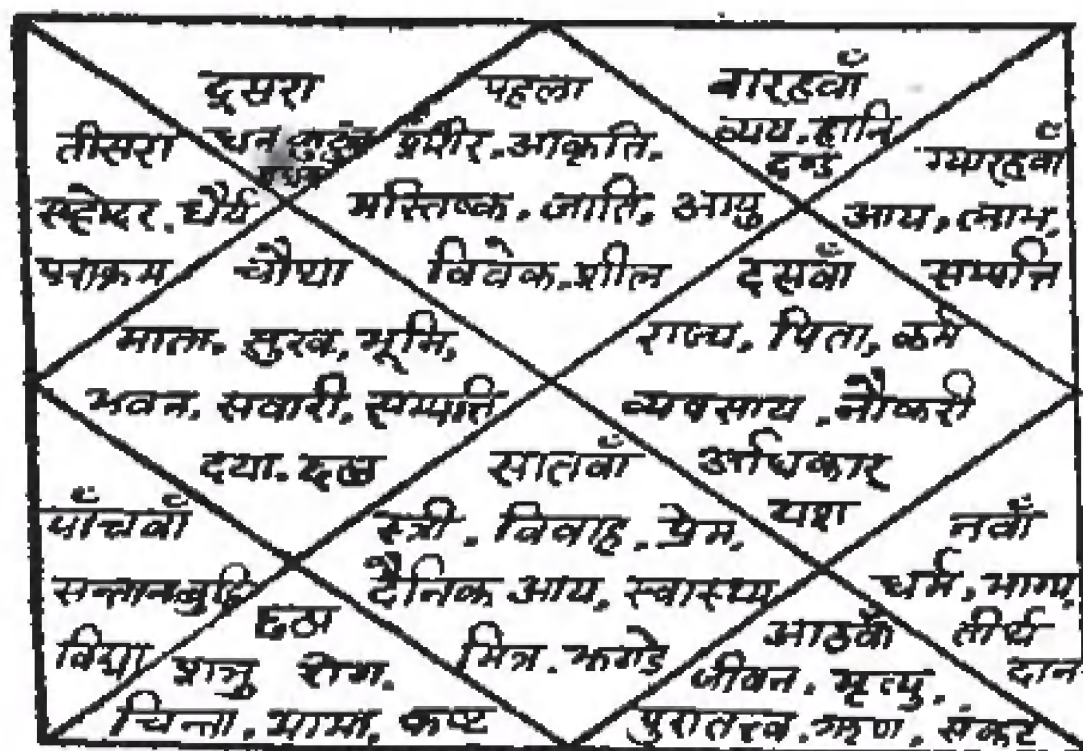 पहला
शरीर. आकृति.
मस्तिष्क. जाति. आयु
विवेक. शील
दूसरा
धन कुटुंब
तीसरा
सहोदर. धैर्य
पराक्रम
चौथा
माता. सुख, भूमि,
भवन. सवारी, सम्पत्ति
दया. छल
पाँचवाँ
सन्तान बुद्धि
विद्या
छठा
शत्रु रोग.
चिन्ता. मामा. कष्ट
सातवाँ
स्त्री. विवाह. प्रेम.
दैनिक आय. स्वास्थ्य
मित्र. झगड़े
आठवाँ
जीवन. मृत्यु.
पुरातत्त्व. ऋण. संकट
नवाँ
धर्म. भाग्य.
तीर्थ
दान
दसवाँ
राज्य, पिता, कर्म
व्यवसाय. नौकरी
अधिकार
यश
ग्यारहवाँ
आय, लाभ,
सम्पत्ति
बारहवाँ
व्यय. हानि
दण्ड